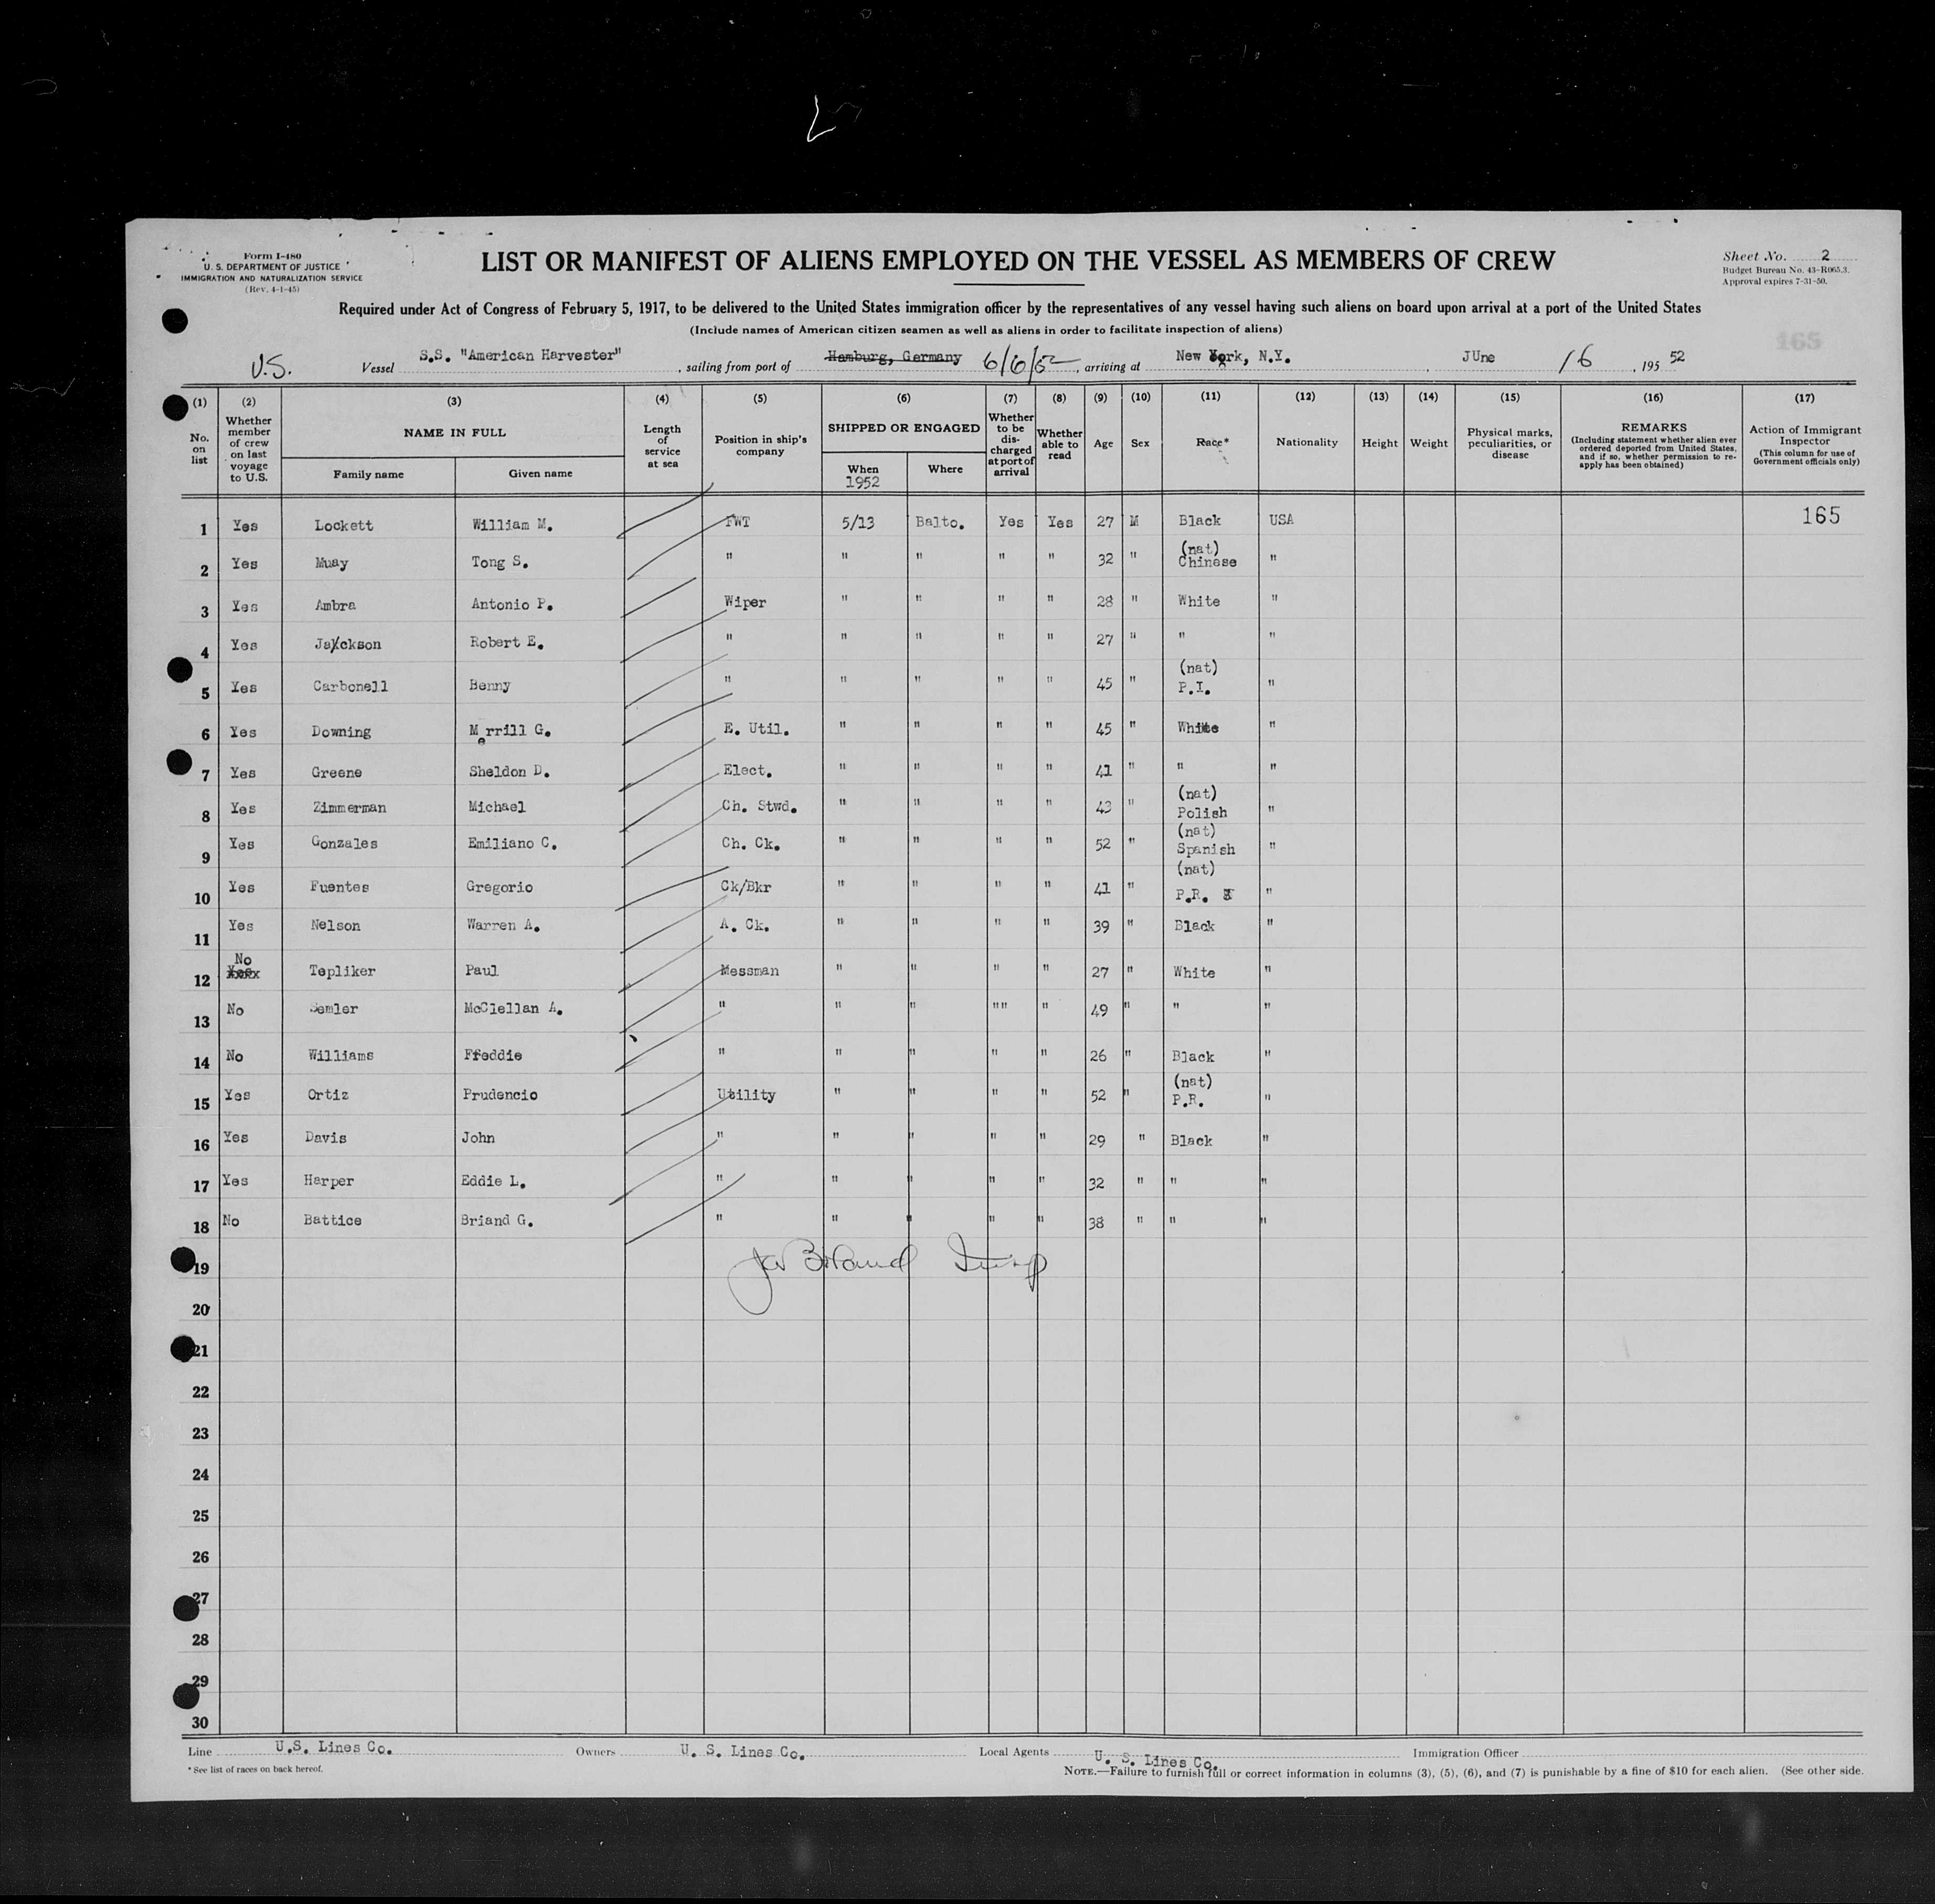 Form I-480
U. S. DEPARTMENT OF JUSTICE
IMMIGRATION AND NATURALIZATION SERVICE
(Rev. 4-1-45)
LIST OR MANIFEST OF ALIENS EMPLOYED ON THE VESSEL AS MEMBERS OF CREW
Sheet No. 2
Budget Bureau No. 43-R065.3.
Approval expires 7-31-50.
Required under Act of Congress of February 5, 1917, to be delivered to the United States immigration officer by the representatives of any vessel having such aliens on board upon arrival at a port of the United States
(Include names of American citizen seamen as well as aliens in order to facilitate inspection of aliens)
165
U.S. Vessel S.S. "American Harvester", sailing from port of Hamburg, Germany 6/6/52, arriving at New York, N.Y., JUne 16, 195 52
(1) (2) (3) (4) (5) (6) (7) (8) (9) (10) (11) (12) (13) (14) (15) (16) (17)
No. on list
Whether member of crew on last voyage to U.S.
NAME IN FULL
Family name Given name
Length of service at sea
Position in ship's company
SHIPPED OR ENGAGED
When 1952 Where
Whether to be discharged at port of arrival
Whether able to read
Age
Sex
Race*
Nationality
Height
Weight
Physical marks, peculiarities, or disease
REMARKS
(Including statement whether alien ever ordered deported from United States, and if so, whether permission to re-apply has been obtained)
Action of Immigrant Inspector
(This column for use of Government officials only)
1 Yes Lockett William M. FWT 5/13 Balto. Yes Yes 27 M Black USA 165
2 Yes Muay Tong S. " " " " " 32 " (nat) Chinese "
3 Yes Ambra Antonio P. Wiper " " " " 28 " White "
4 Yes Ja/ckson Robert E. " " " " " 27 " " "
5 Yes Carbonell Benny " " " " " 45 " (nat) P.I. "
6 Yes Downing Merrill G. E. Util. " " " " 45 " White "
7 Yes Greene Sheldon D. Elect. " " " " 41 " " "
8 Yes Zimmerman Michael Ch. Stwd. " " " " 43 " (nat) Polish "
9 Yes Gonzales Emiliano C. Ch. Ck. " " " " 52 " (nat) Spanish "
10 Yes Fuentes Gregorio Ck/Bkr " " " " 41 " (nat) P.R. "
11 Yes Nelson Warren A. A. Ck. " " " " 39 " Black "
12 No Yes Tepliker Paul Messman " " " " 27 " White "
13 No Semler McClellan A. " " " "" " 49 " " "
14 No Williams Freddie " " " " " 26 " Black "
15 Yes Ortiz Prudencio Utility " " " " 52 " (nat) P.R. "
16 Yes Davis John " " " " " 29 " Black "
17 Yes Harper Eddie L. " " " " " 32 " " "
18 No Battice Briand G. " " " " " 38 " " "
19
20
21
22
23
24
25
26
27
28
29
30
Line U.S. Lines Co. Owners U. S. Lines Co. Local Agents U. S. Lines Co. Immigration Officer
* See list of races on back hereof.
NOTE.—Failure to furnish full or correct information in columns (3), (5), (6), and (7) is punishable by a fine of $10 for each alien. (See other side.